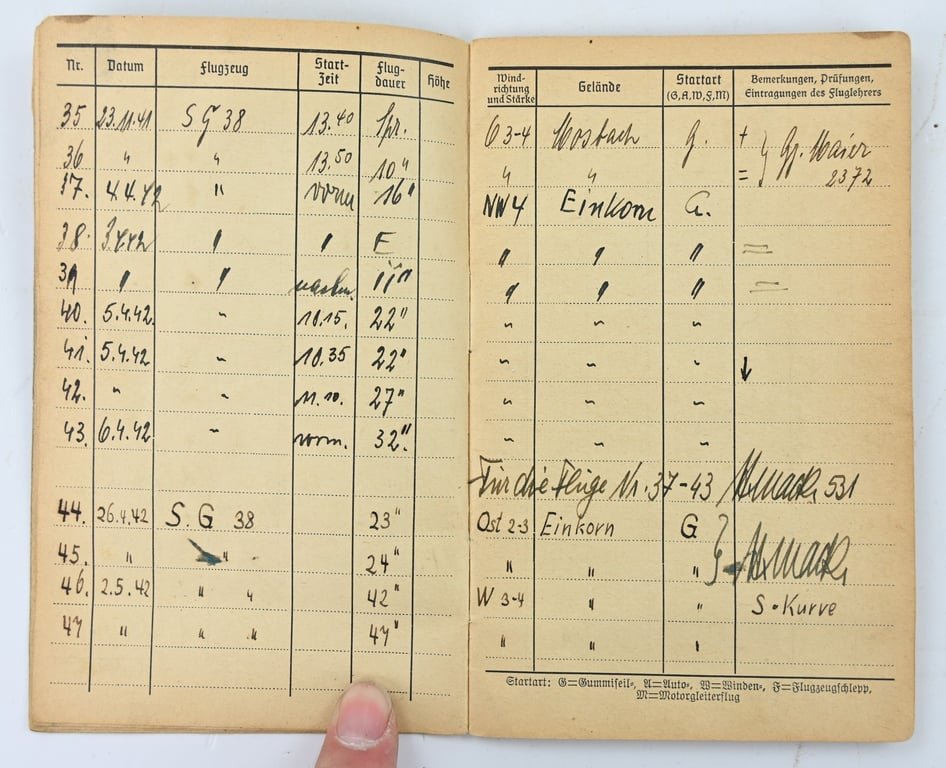 Nr. Datum Flugzeug Start-Zeit Flug-dauer Höhe
35 23.11.41 SG 38 13.40 Spr.
36 " " 13.50 10"
37. 4.4.42 " vorm 16"
38. 3.4.42 " "
39 " " nachm. 11"
40. 5.4.42. " 10.15. 22"
41. 5.4.42 " 10.35 22"
42. " " 11.10. 27"
43. 6.4.42. " vorm. 32"
44. 26.4.42 S.G 38 23"
45. " " 24"
46. 2.5.42 " " 42"
47 " " " 47"
Wind-richtung und Stärke Gelände Startart (G,A,W,F,M) Bemerkungen, Prüfungen, Eintragungen des Fluglehrers
3-4 Mosbach G. + Maier
" " = 2372
NW 4 Einkorn G.
" " " =
" " " =
" " "
" " " ↓
" " "
" " "
Für die Flüge Nr. 37-43 531
Ost 2-3 Einkorn G
" " "
W 3-4 " " S-Kurve
" " "
Startart: G=Gummiseil-, A=Auto-, W=Winden-, F=Flugzeugschlepp,
M=Motorgleiterflug